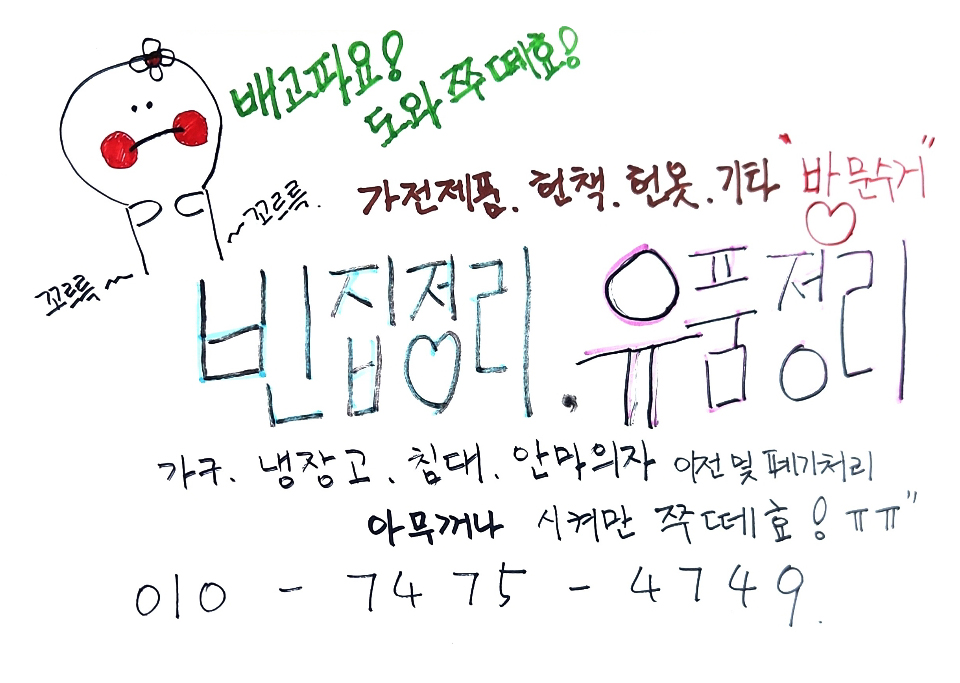 배고파요!
도와 쭈떼효!
가전제품. 헌책. 헌옷. 기타 "방문수거"
~꼬르륵.
꼬르륵~
빈집정리. 유품정리
가구. 냉장고. 침대. 안막의자 이전 및 폐기처리
아무꺼나 시켜만 쭈떼효! ㅠㅠ"
010 - 7475 - 4749.